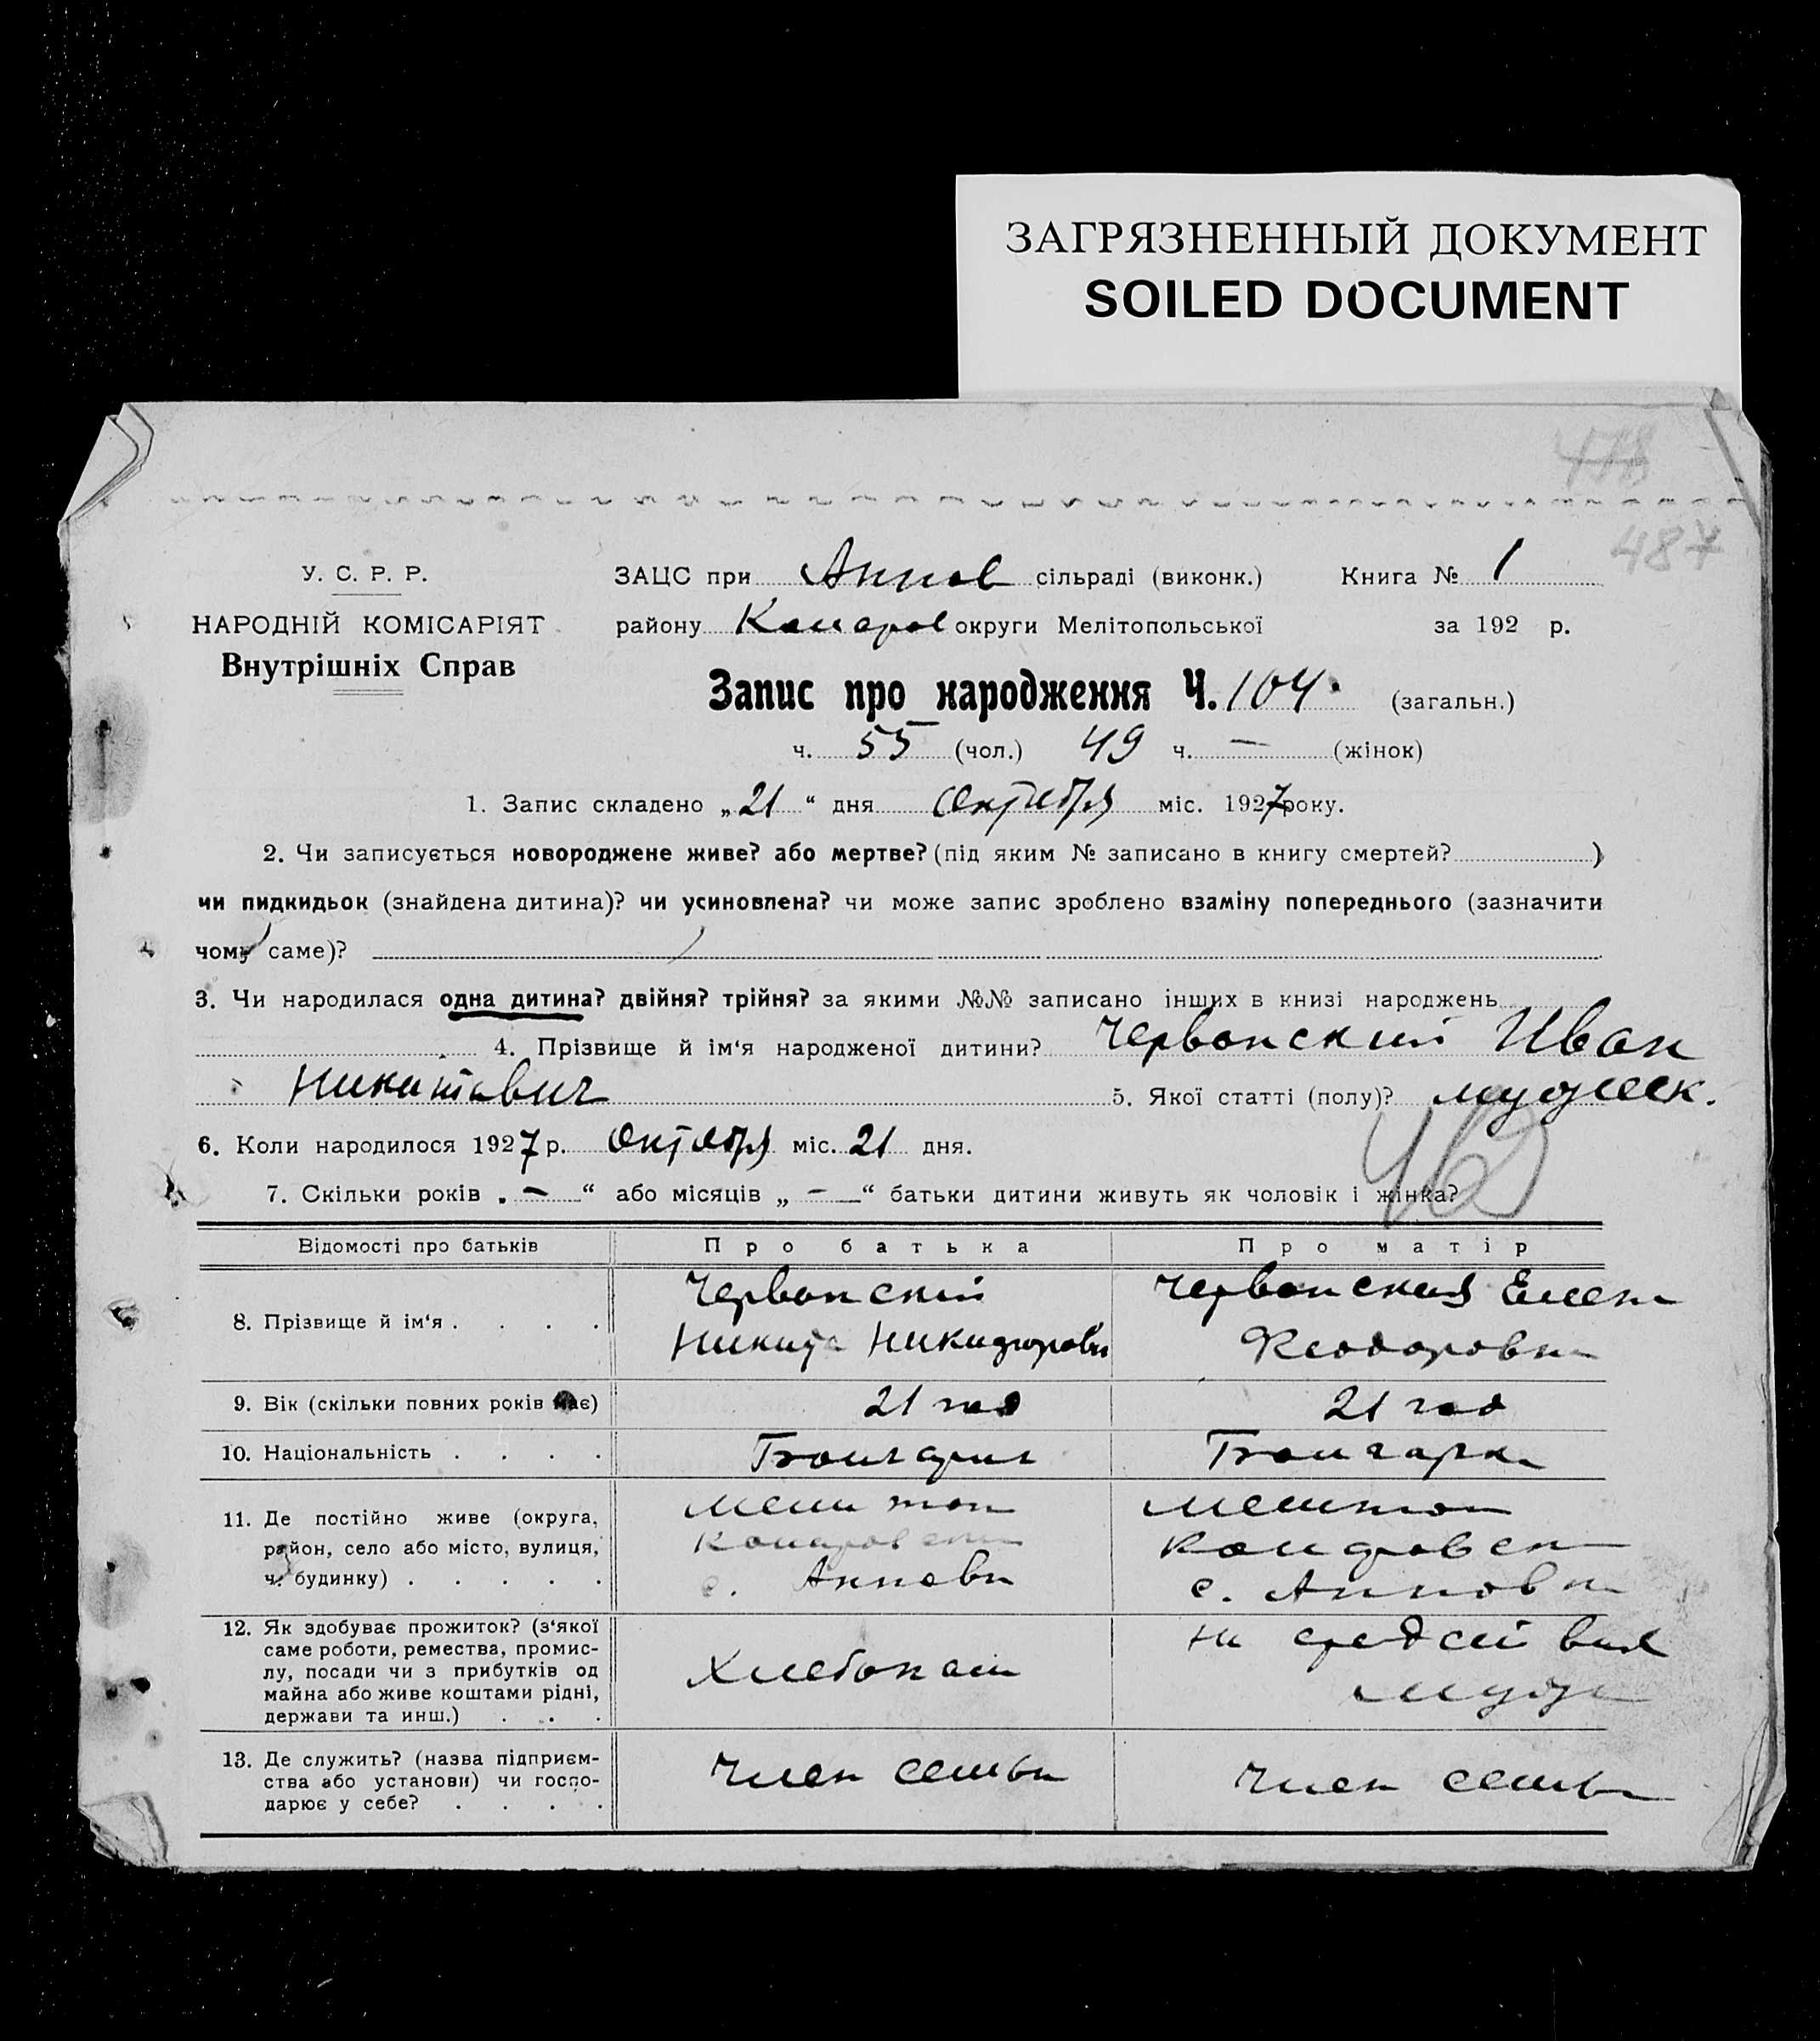 ЗАГРЯЗНЕННЫЙ ДОКУМЕНТ
SOILED DOCUMENT
478
487
У. С. Р. Р.
НАРОДНІЙ КОМІСАРІЯТ
Внутрішніх Справ
ЗАЦС при Аннов сільраді (виконк.) Книга № 1
району Комаров округи Мелітопольської за 192 р.
Запис про народження Ч. 104. (загальн.)
ч. 55 (чол.) 49 ч. — (жінок)
1. Запис складено „21“ дня Октября міс. 1927 року.
2. Чи записується новороджене живе? або мертве? (під яким № записано в книгу смертей? )
чи пидкидьок (знайдена дитина)? чи усиновлена? чи може запис зроблено взаміну попереднього (зазначити
чому саме)?
3. Чи народилася одна дитина? двійня? трійня? за якими №№ записано інших в книзі народжень
4. Прізвище й ім‘я народженої дитини? Червонский Иван
Никитович 5. Якої статті (полу)? мужеск.
6. Коли народилося 1927 р. Октября міс. 21 дня.
7. Скільки років „—“ або місяців „—“ батьки дитини живуть як чоловік і жінка?
Відомості про батьків Про батька Про матір
8. Прізвище й ім‘я . . . . Червонский Червонская Елена
Никита Никифоров Феодоровн
9. Вік (скільки повних років має) 21 год 21 год
10. Національність . . . . Болгарин Болгарка
11. Де постійно живе (округа, Мелитоп Мелитоп
район, село або місто, вулиця, Комаровск Комаровск
ч. будинку) . . . . . с. Анновк с. Анновк
12. Як здобуває прожиток? (з‘якої
саме роботи, ремества, промис-
лу, посади чи з прибутків од
майна або живе коштами рідні,
держави та инш.) . . .
Хлебопаш
На средства
мужа
13. Де служить? (назва підприєм-
ства або установи) чи госпо-
дарює у себе? . . . .
Член семьи Член семьи